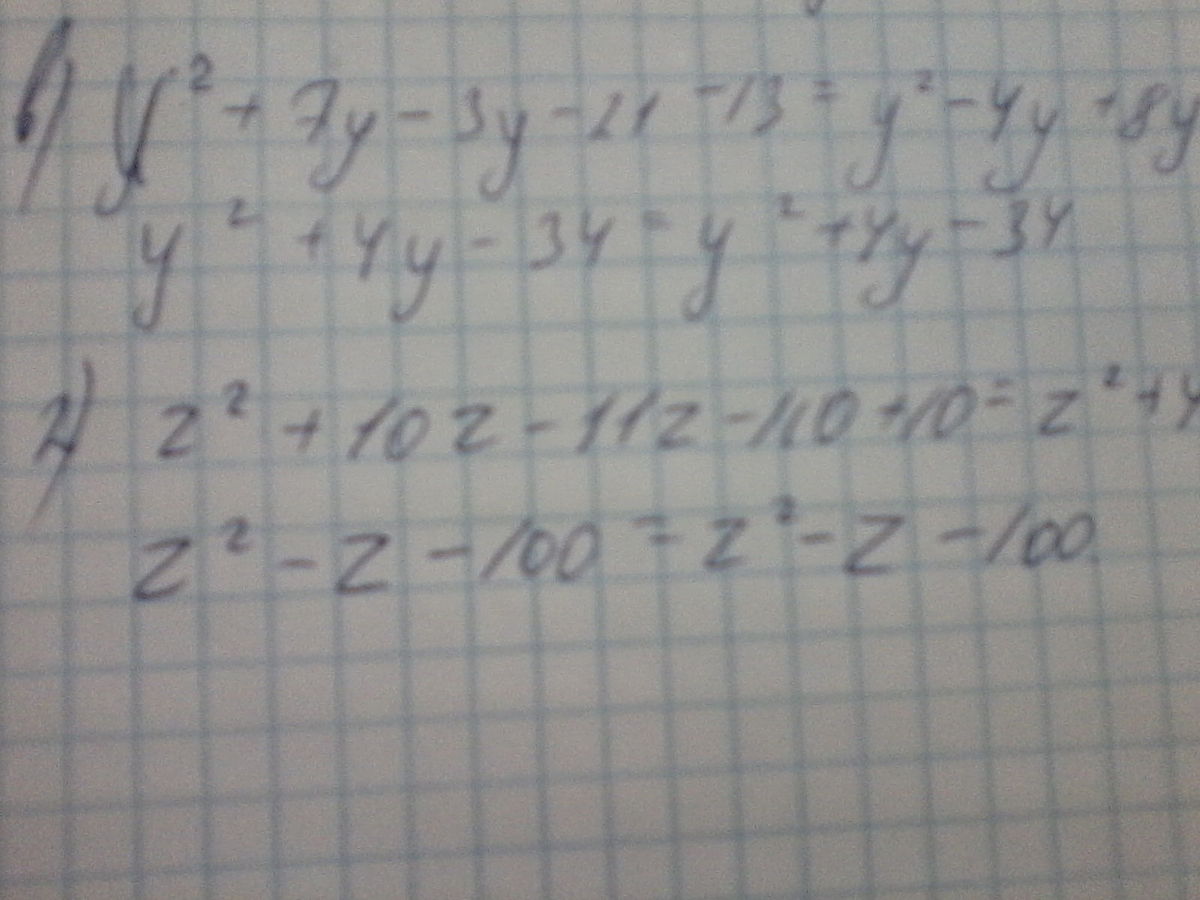 в) y² + 7y - 3y - 21 - 13 = y² - 4y + 8y
y² + 4y - 34 = y² + 4y - 34
г) z² + 10z - 11z - 110 + 10 = z² + 4
z² - z - 100 = z² - z - 100.